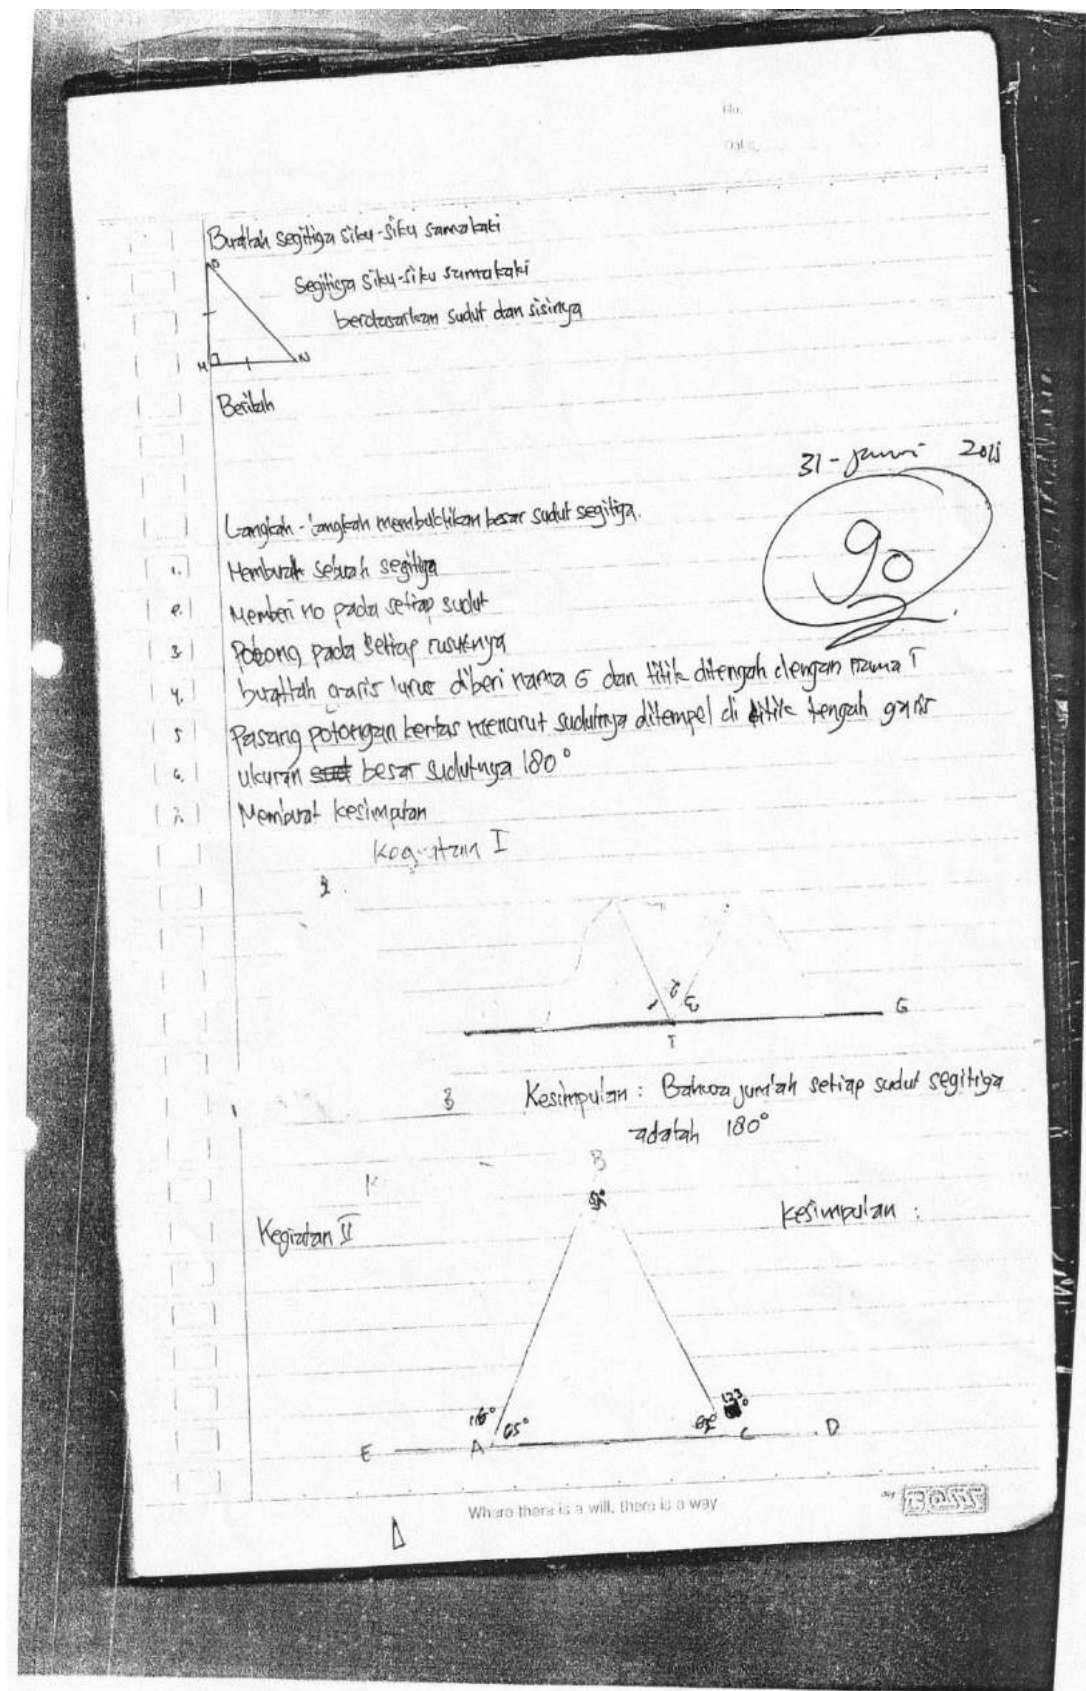 No.
Date.
Buatlah segitiga siku-siku samakaki
O
Segitiga siku-siku samakaki
berdasarkan sudut dan sisinya
M N
Berilah
31 - 2011
90
Langkah-langkah membuktikan besar sudut segitiga.
1. Membuat sebuah segitiga
2. Memberi no pada setiap sudut
3. Potong pada setiap rusuknya
4. buatlah garis lurus diberi nama G dan titik ditengah dengan nama T
5 Pasang potongan kertas menurut sudutnya ditempel di titik tengah garis
6. ukuran besar sudutnya 180°
7. Membuat kesimpulan
Kegiatan I
2.
1 2 3
G
T
3 Kesimpulan : Bahwa jumlah setiap sudut segitiga
adalah 180°
B
Kegiatan II
kesimpulan :
116° 65° 123°
E A C D
Where there is a will, there is a way